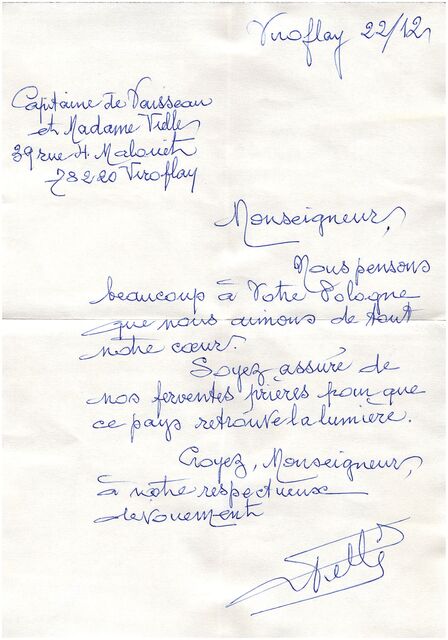 Viroflay 22/12
Capitaine de Vaisseau
et Madame Vielle
39 rue H. Malouet
78220 Viroflay
Monseigneur,
Nous pensons
beaucoup à Votre Pologne
que nous aimons de tout
notre cœur.
Soyez assuré de
nos ferventes prières pour que
ce pays retrouve la lumière.
Croyez, Monseigneur,
à notre respectueux
dévouement